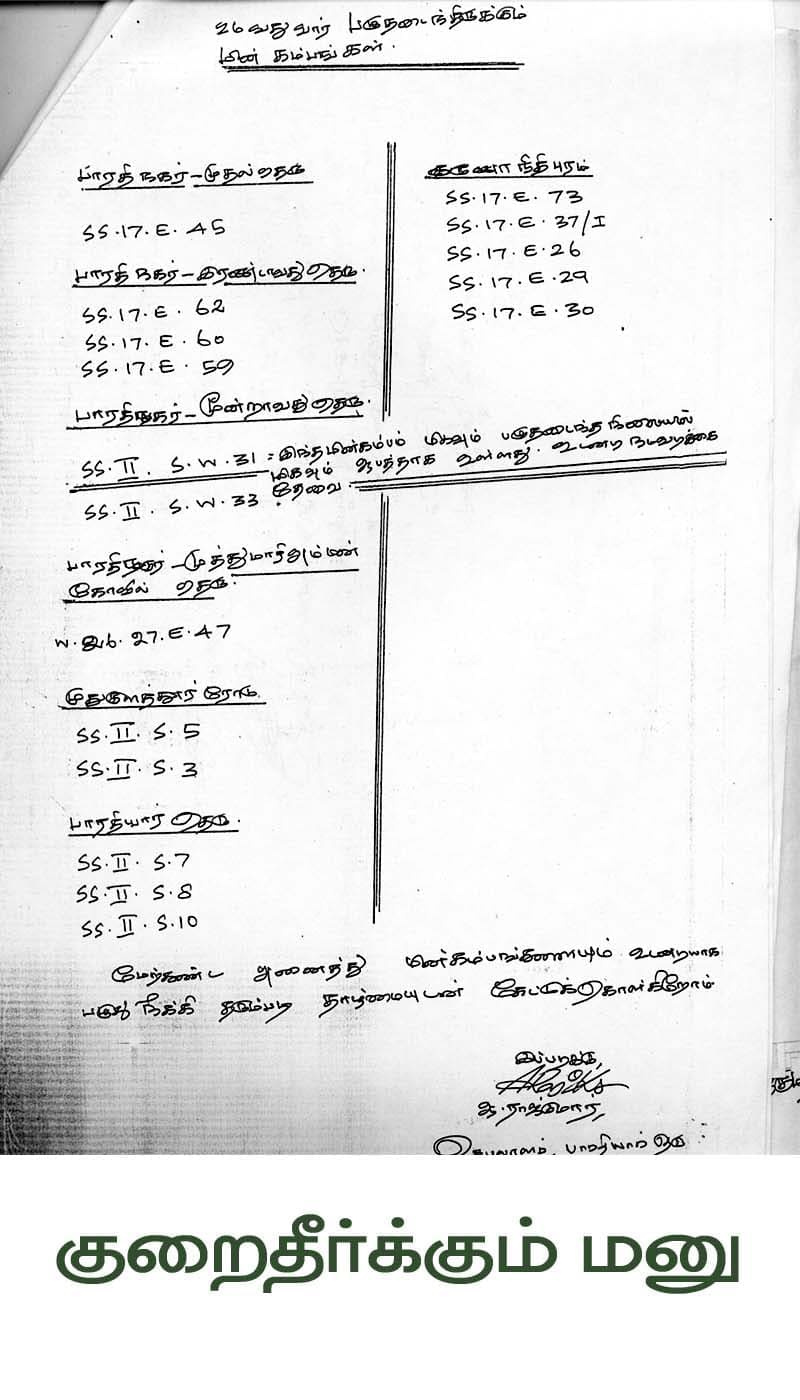 26 வது வார் பழுதடைந்திருக்கும்
மின் கம்பங்கள்.
பாரதி நகர் - முதல் தெரு
SS. 17. E. 45
பாரதி நகர் - இரண்டாவது தெரு.
SS. 17. E. 62
SS. 17. E. 60
SS. 17. E. 59
பாரதிநகர் - மூன்றாவது தெரு.
SS. II. S. W. 31 = இந்தமின்கம்பம் மிகவும் பழுதடைந்த நிலையில்
மிகவும் ஆபத்தாக உள்ளது. உடனடி நடவடிக்கை
தேவை.
SS. II. S. W. 33
பாரதிநகர் - முத்துமாரிஅம்மன்
கோவில் தெரு.
27. E. 47
முதுகுளத்தூர் ரோடு.
SS. II. S. 5
SS. II. S. 3
பாரதியார் தெரு.
SS. II. S. 7
SS. II. S. 8
SS. II. S. 10
கருணாநிதிபுரம்
SS. 17. E. 73
SS. 17. E. 37/I
SS. 17. E. 26
SS. 17. E. 29
SS. 17. E. 30
மேற்கண்ட அனைத்து மின்கம்பங்களையும் உடனடியாக
பழுது நீக்கி தரும்படி தாழ்மையுடன் கேட்டுக்கொள்கிறோம்
இப்படிக்கு,
பாரதியார் தெரு
குறைதீர்க்கும் மனு